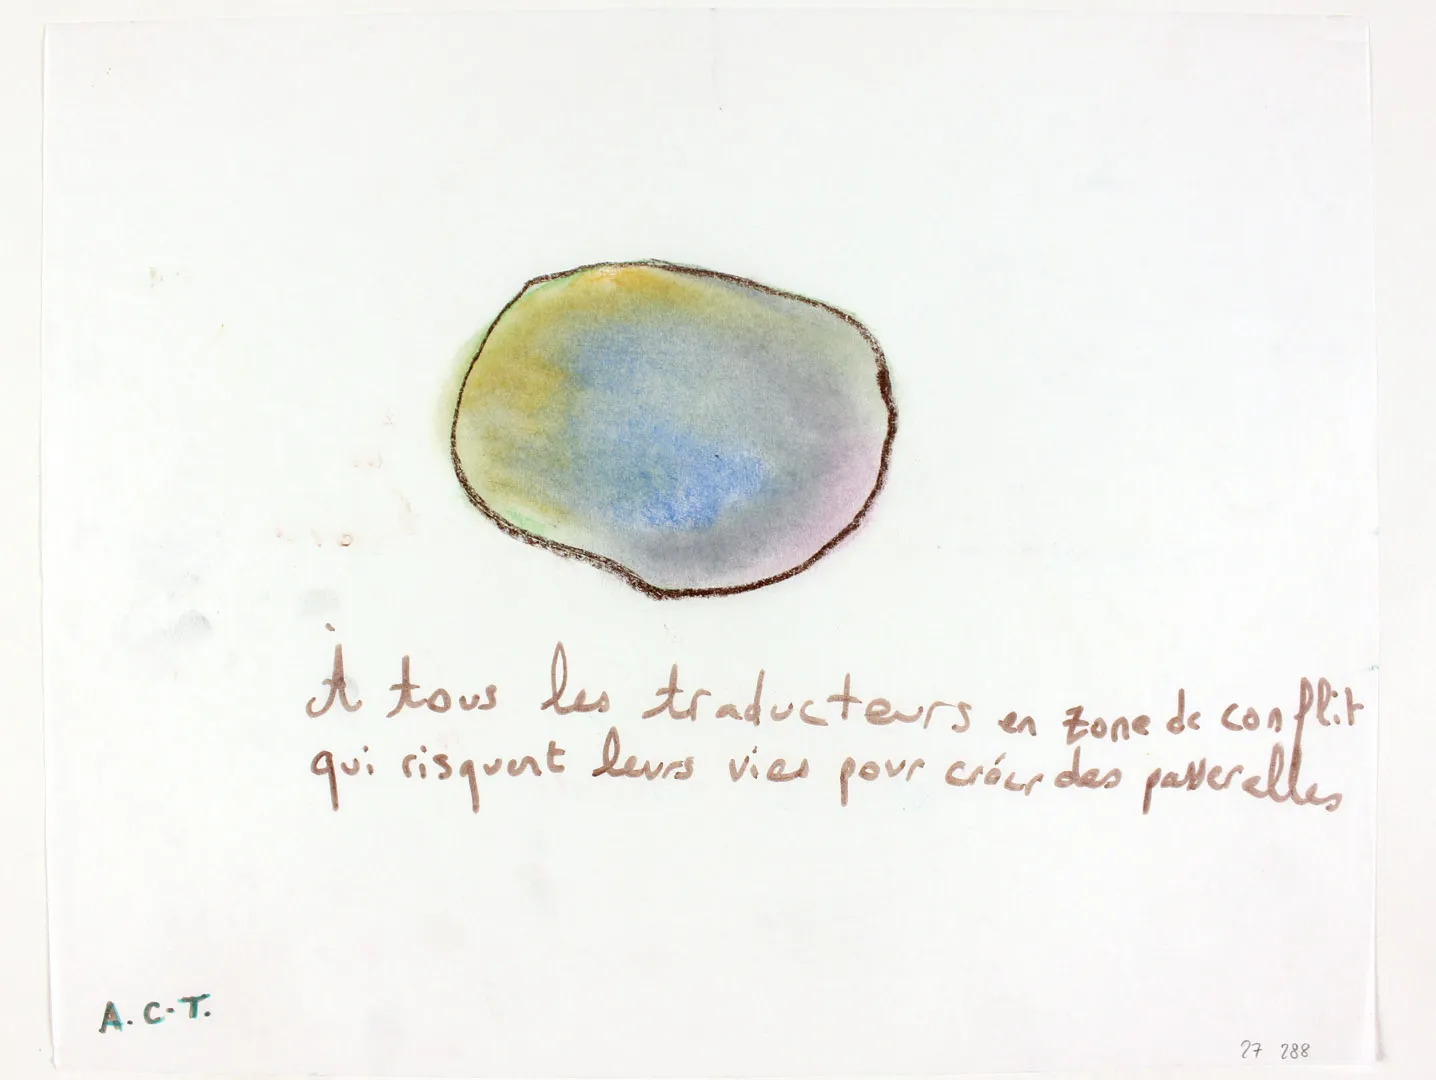 À tous les traducteurs en zone de conflit
qui risquent leurs vies pour créer des passerelles
A.C-T.
27 288